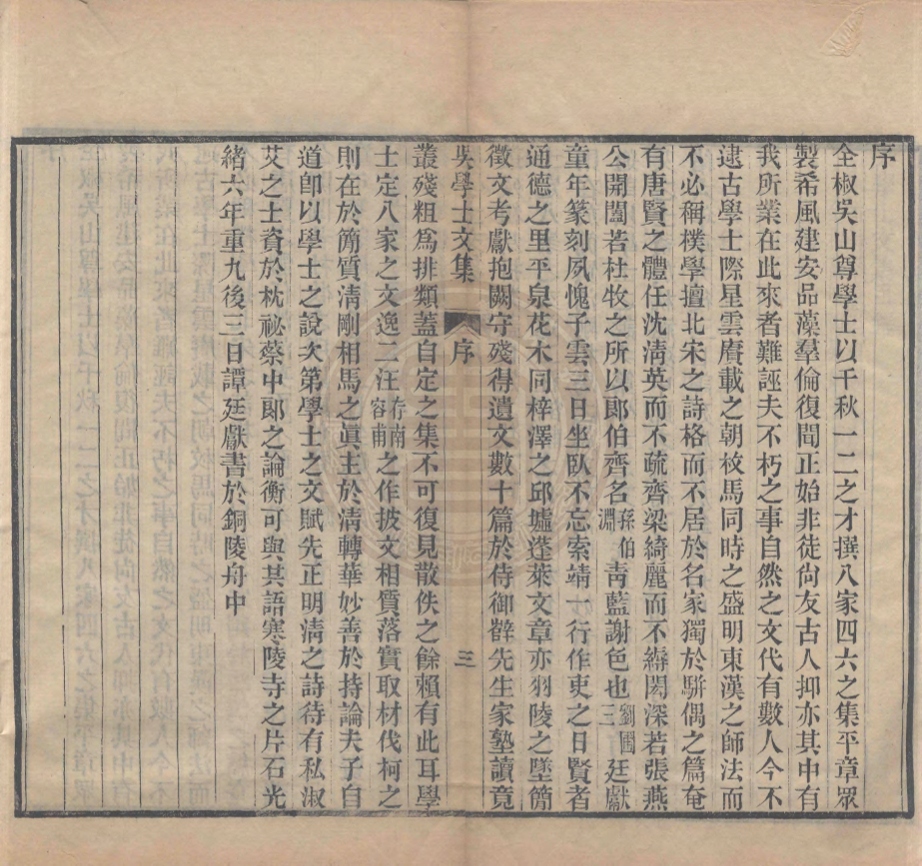 序
全椒吳山尊學士以千秋一二之才撰八家四六之集平章眾
製希風建安品藻羣倫復聞正始非徒尙友古人抑亦其中有
我所業在此來者難誣夫不朽之事自然之文代有數人今不
逮古學士際星雲賡載之朝校馬同時之盛明東漢之師法而
不必稱樸學擅北宋之詩格而不居於名家獨於駢偶之篇奄
有唐賢之體任沈淸英而不疏齊梁綺麗而不縟閎深若張燕
公開闔若杜牧之所以郞伯齊名孫伯淵靑藍謝色也劉圃三廷獻
童年篆刻夙愧子雲三日坐臥不忘索靖一行作吏之日賢者
通德之里平泉花木同梓澤之邱墟蓬萊文章亦羽陵之墜簡
徵文考獻抱闕守殘得遺文數十篇於侍御辥先生家塾讀竟
吳學士文集 序 三
叢殘粗爲排類蓋自定之集不可復見散佚之餘賴有此耳學
士定八家之文逸二汪存南容甫之作披文相質落實取材伐柯之
則在於簡質淸剛相馬之眞主於淸轉華妙善於持論夫子自
道卽以學士之說次第學士之文賦先正明淸之詩待有私淑
艾之士資於枕祕蔡中郞之論衡可與共語寒陵寺之片石光
緒六年重九後三日譚廷獻書於銅陵舟中